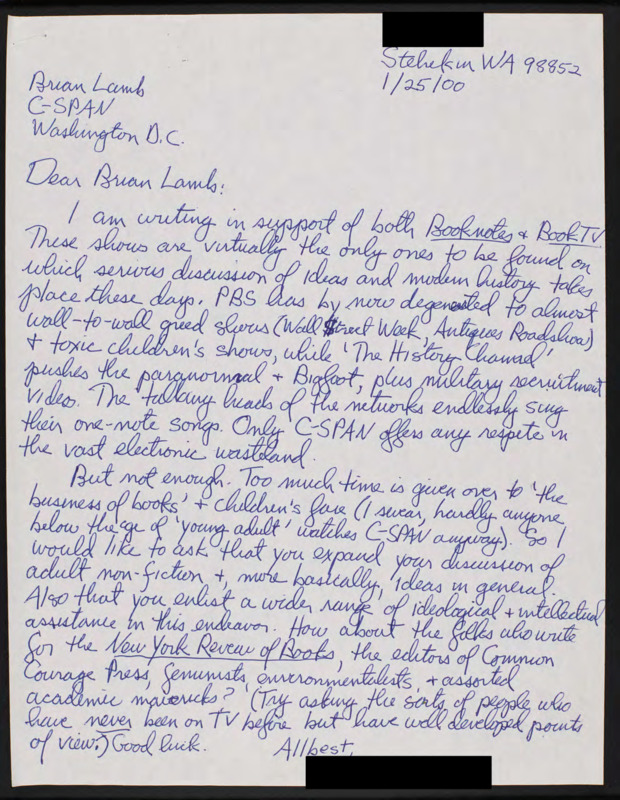 Stehekin WA 98852
1/25/00
Brian Lamb
C-SPAN
Washington D.C.
Dear Brian Lamb:
I am writing in support of both Booknotes + Book TV
These shows are virtually the only ones to be found on
which serious discussion of ideas and modern history takes
place these days. PBS has by now degenerated to almost
wall-to-wall greed shows (Wall $treet Week, Antiques Roadshow)
+ toxic children's shows, while 'The History Channel'
pushes the paranormal + Bigfoot, plus military recruitment
video. The talking heads of the networks endlessly sing
their one-note songs. Only C-SPAN offers any respite in
the vast electronic wasteland.
But not enough. Too much time is given over to 'the
business of books' + children's fare (I swear, hardly anyone
below the age of 'young adult' watches C-SPAN anyway). So I
would like to ask that you expand your discussion of
adult non-fiction +, more basically, ideas in general.
Also that you enlist a wider range of ideological + intellectual
assistance in this endeavor. How about the folks who write
for the New York Review of Books, the editors of Common
Courage Press, feminists, environmentalists, + assorted
academic mavericks? (Try asking the sorts of people who
have never been on TV before but have well developed points
of view.) Good luck.
All best,